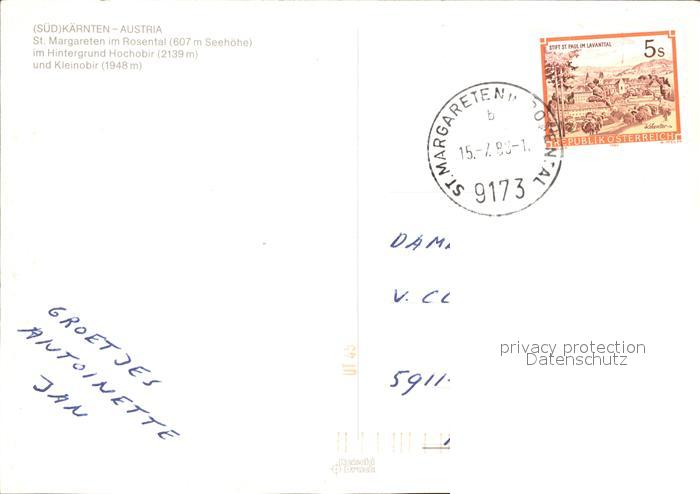 (SÜD)KÄRNTEN – AUSTRIA
St. Margareten im Rosental (607 m Seehöhe)
im Hintergrund Hochobir (2139 m)
und Kleinobir (1948 m)
STIFT ST. PAUL IM LAVANTTAL
5s
REPUBLIK ÖSTERREICH
ST. MARGARETEN
b
9173
V. CL
5911
GROETJES
ANTOINETTE
JAN
privacy protection
Datenschutz
UT 45